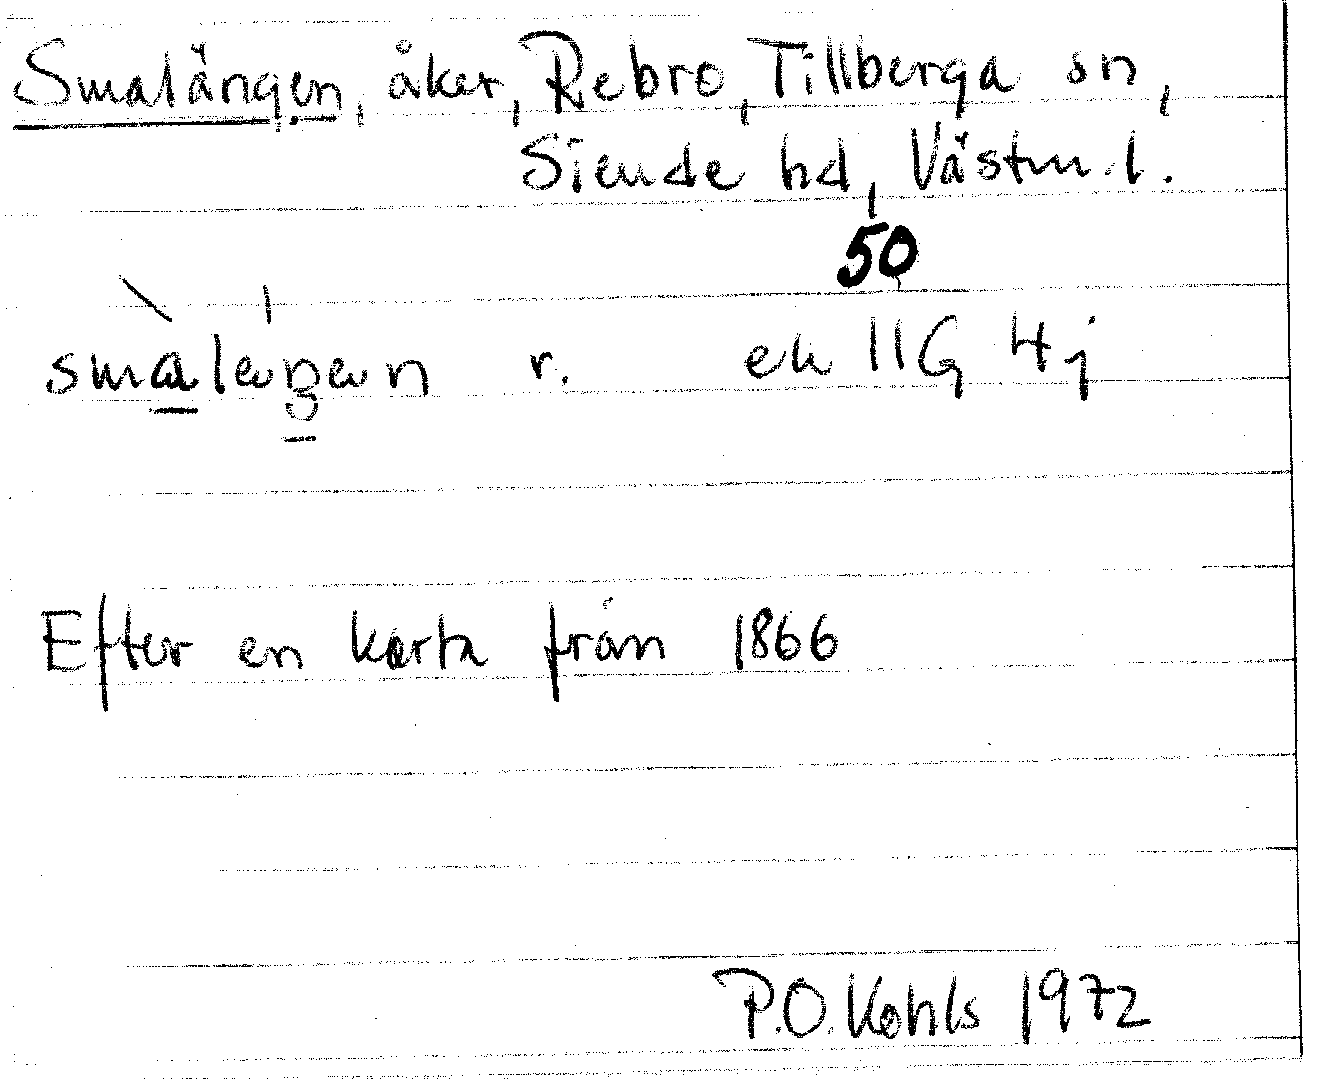 Smalängen, åker, Rebro, Tillberga sn,
Siende hd, Västm. l.
50
smalängan r. ek 11G 4j
Efter en karta från 1866
P.O. Kohls 1972